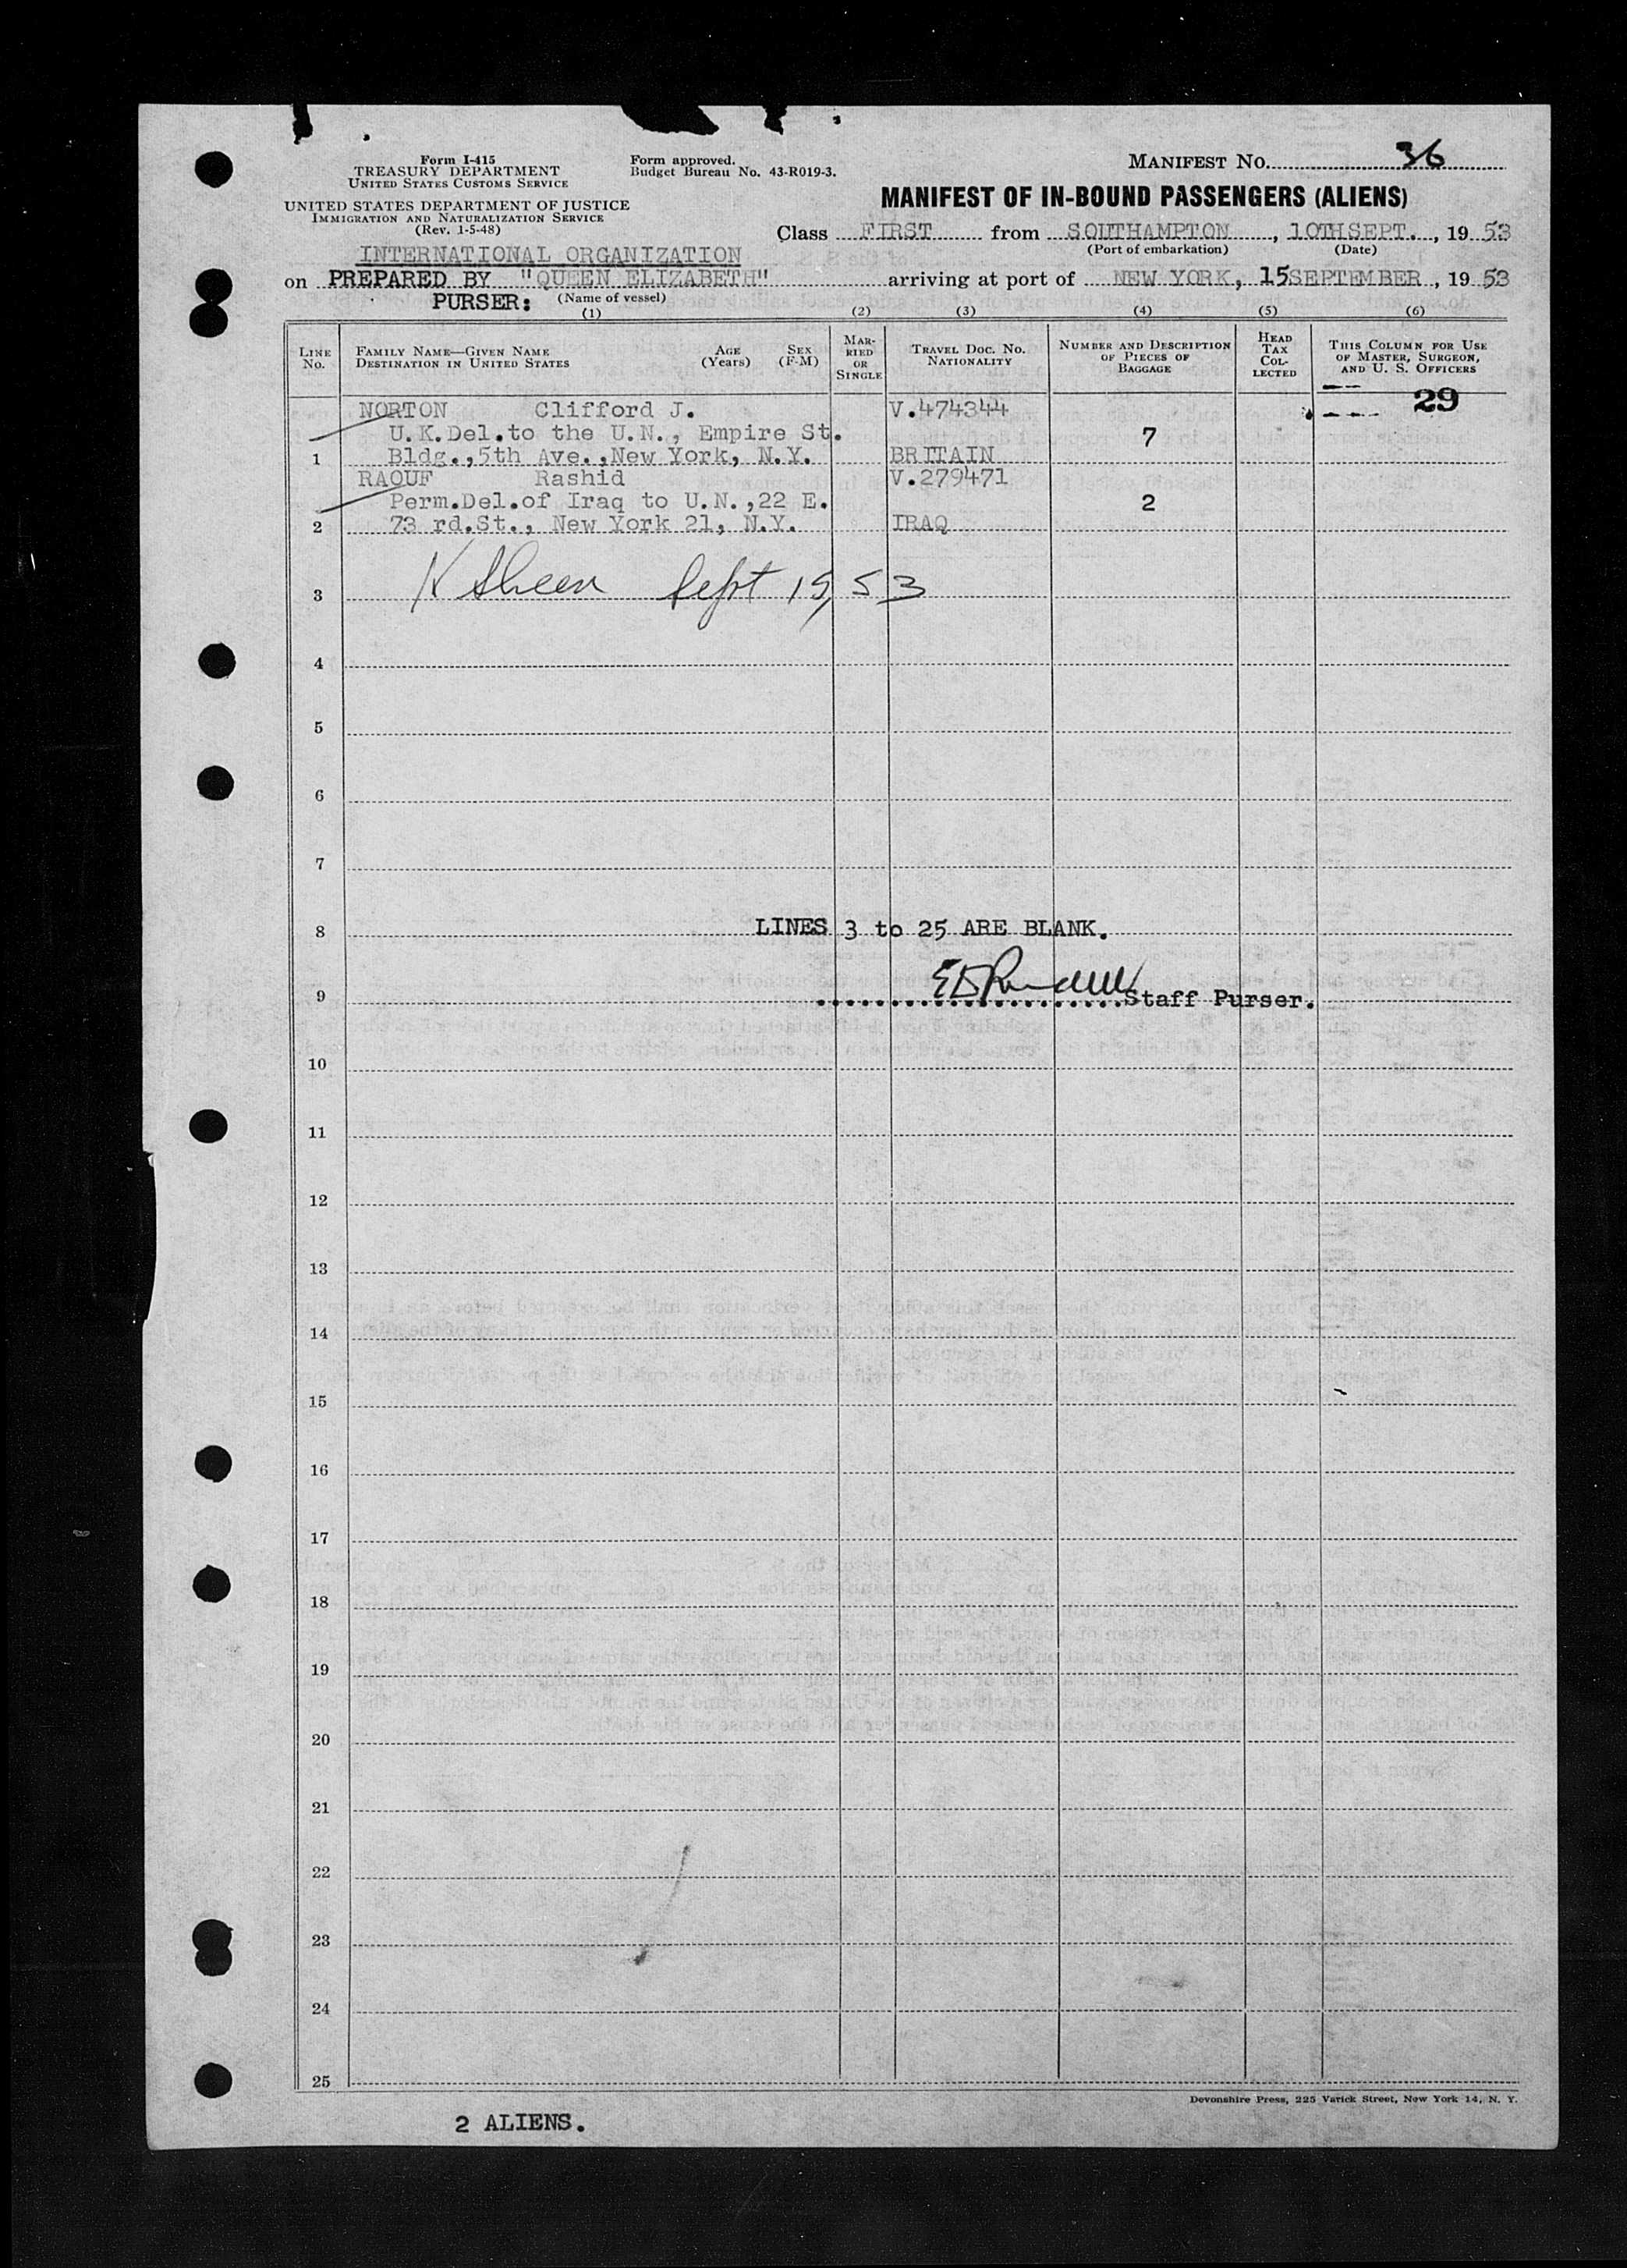 Form I-415
TREASURY DEPARTMENT
UNITED STATES CUSTOMS SERVICE
UNITED STATES DEPARTMENT OF JUSTICE
IMMIGRATION AND NATURALIZATION SERVICE
(Rev. 1-5-48)
Form approved.
Budget Bureau No. 43-R019-3.
MANIFEST NO. 36
MANIFEST OF IN-BOUND PASSENGERS (ALIENS)
Class FIRST from SOUTHAMPTON, 10TH SEPT., 1953
(Port of embarkation) (Date)
INTERNATIONAL ORGANIZATION
on PREPARED BY "QUEEN ELIZABETH" arriving at port of NEW YORK, 15 SEPTEMBER, 1953
PURSER: (Name of vessel)
(1) (2) (3) (4) (5) (6)
LINE No.
FAMILY NAME—GIVEN NAME
DESTINATION IN UNITED STATES
AGE (Years)
SEX (F-M)
MARRIED OR SINGLE
TRAVEL DOC. NO.
NATIONALITY
NUMBER AND DESCRIPTION OF PIECES OF BAGGAGE
HEAD TAX COLLECTED
THIS COLUMN FOR USE OF MASTER, SURGEON, AND U. S. OFFICERS
29
NORTON Clifford J. V.474344
U.K.Del.to the U.N., Empire St. 7
1 Bldg.,5th Ave.,New York, N.Y. BRITAIN
RAOUF Rashid V.279471
Perm.Del.of Iraq to U.N.,22 E. 2
2 73 rd.St., New York 21, N.Y. IRAQ
3 Sept 15, 53
4
5
6
7
8 LINES 3 to 25 ARE BLANK.
9 Staff Purser.
10
11
12
13
14
15
16
17
18
19
20
21
22
23
24
25
Devonshire Press, 225 Varick Street, New York 14, N. Y.
2 ALIENS.